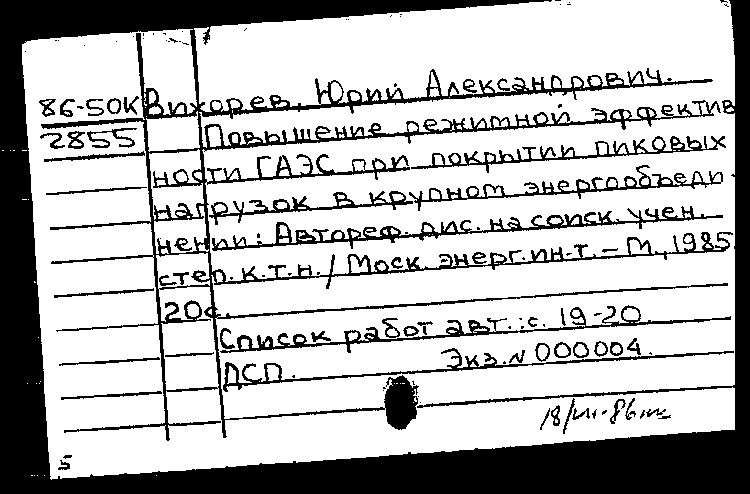 86-50К Вихорев, Юрий Александрович.
2855 Повышение режимной эффектив
ности ГАЭС при покрытии пиковых
нагрузок в крупном энергообъеди-
нении: Автореф. дис. на соиск. учен.
степ. к.т.н. / Моск. энерг. ин-т. – М., 1985.
20с.
Список работ авт.: с. 19-20.
ДСП. Экз. № 000004.
5